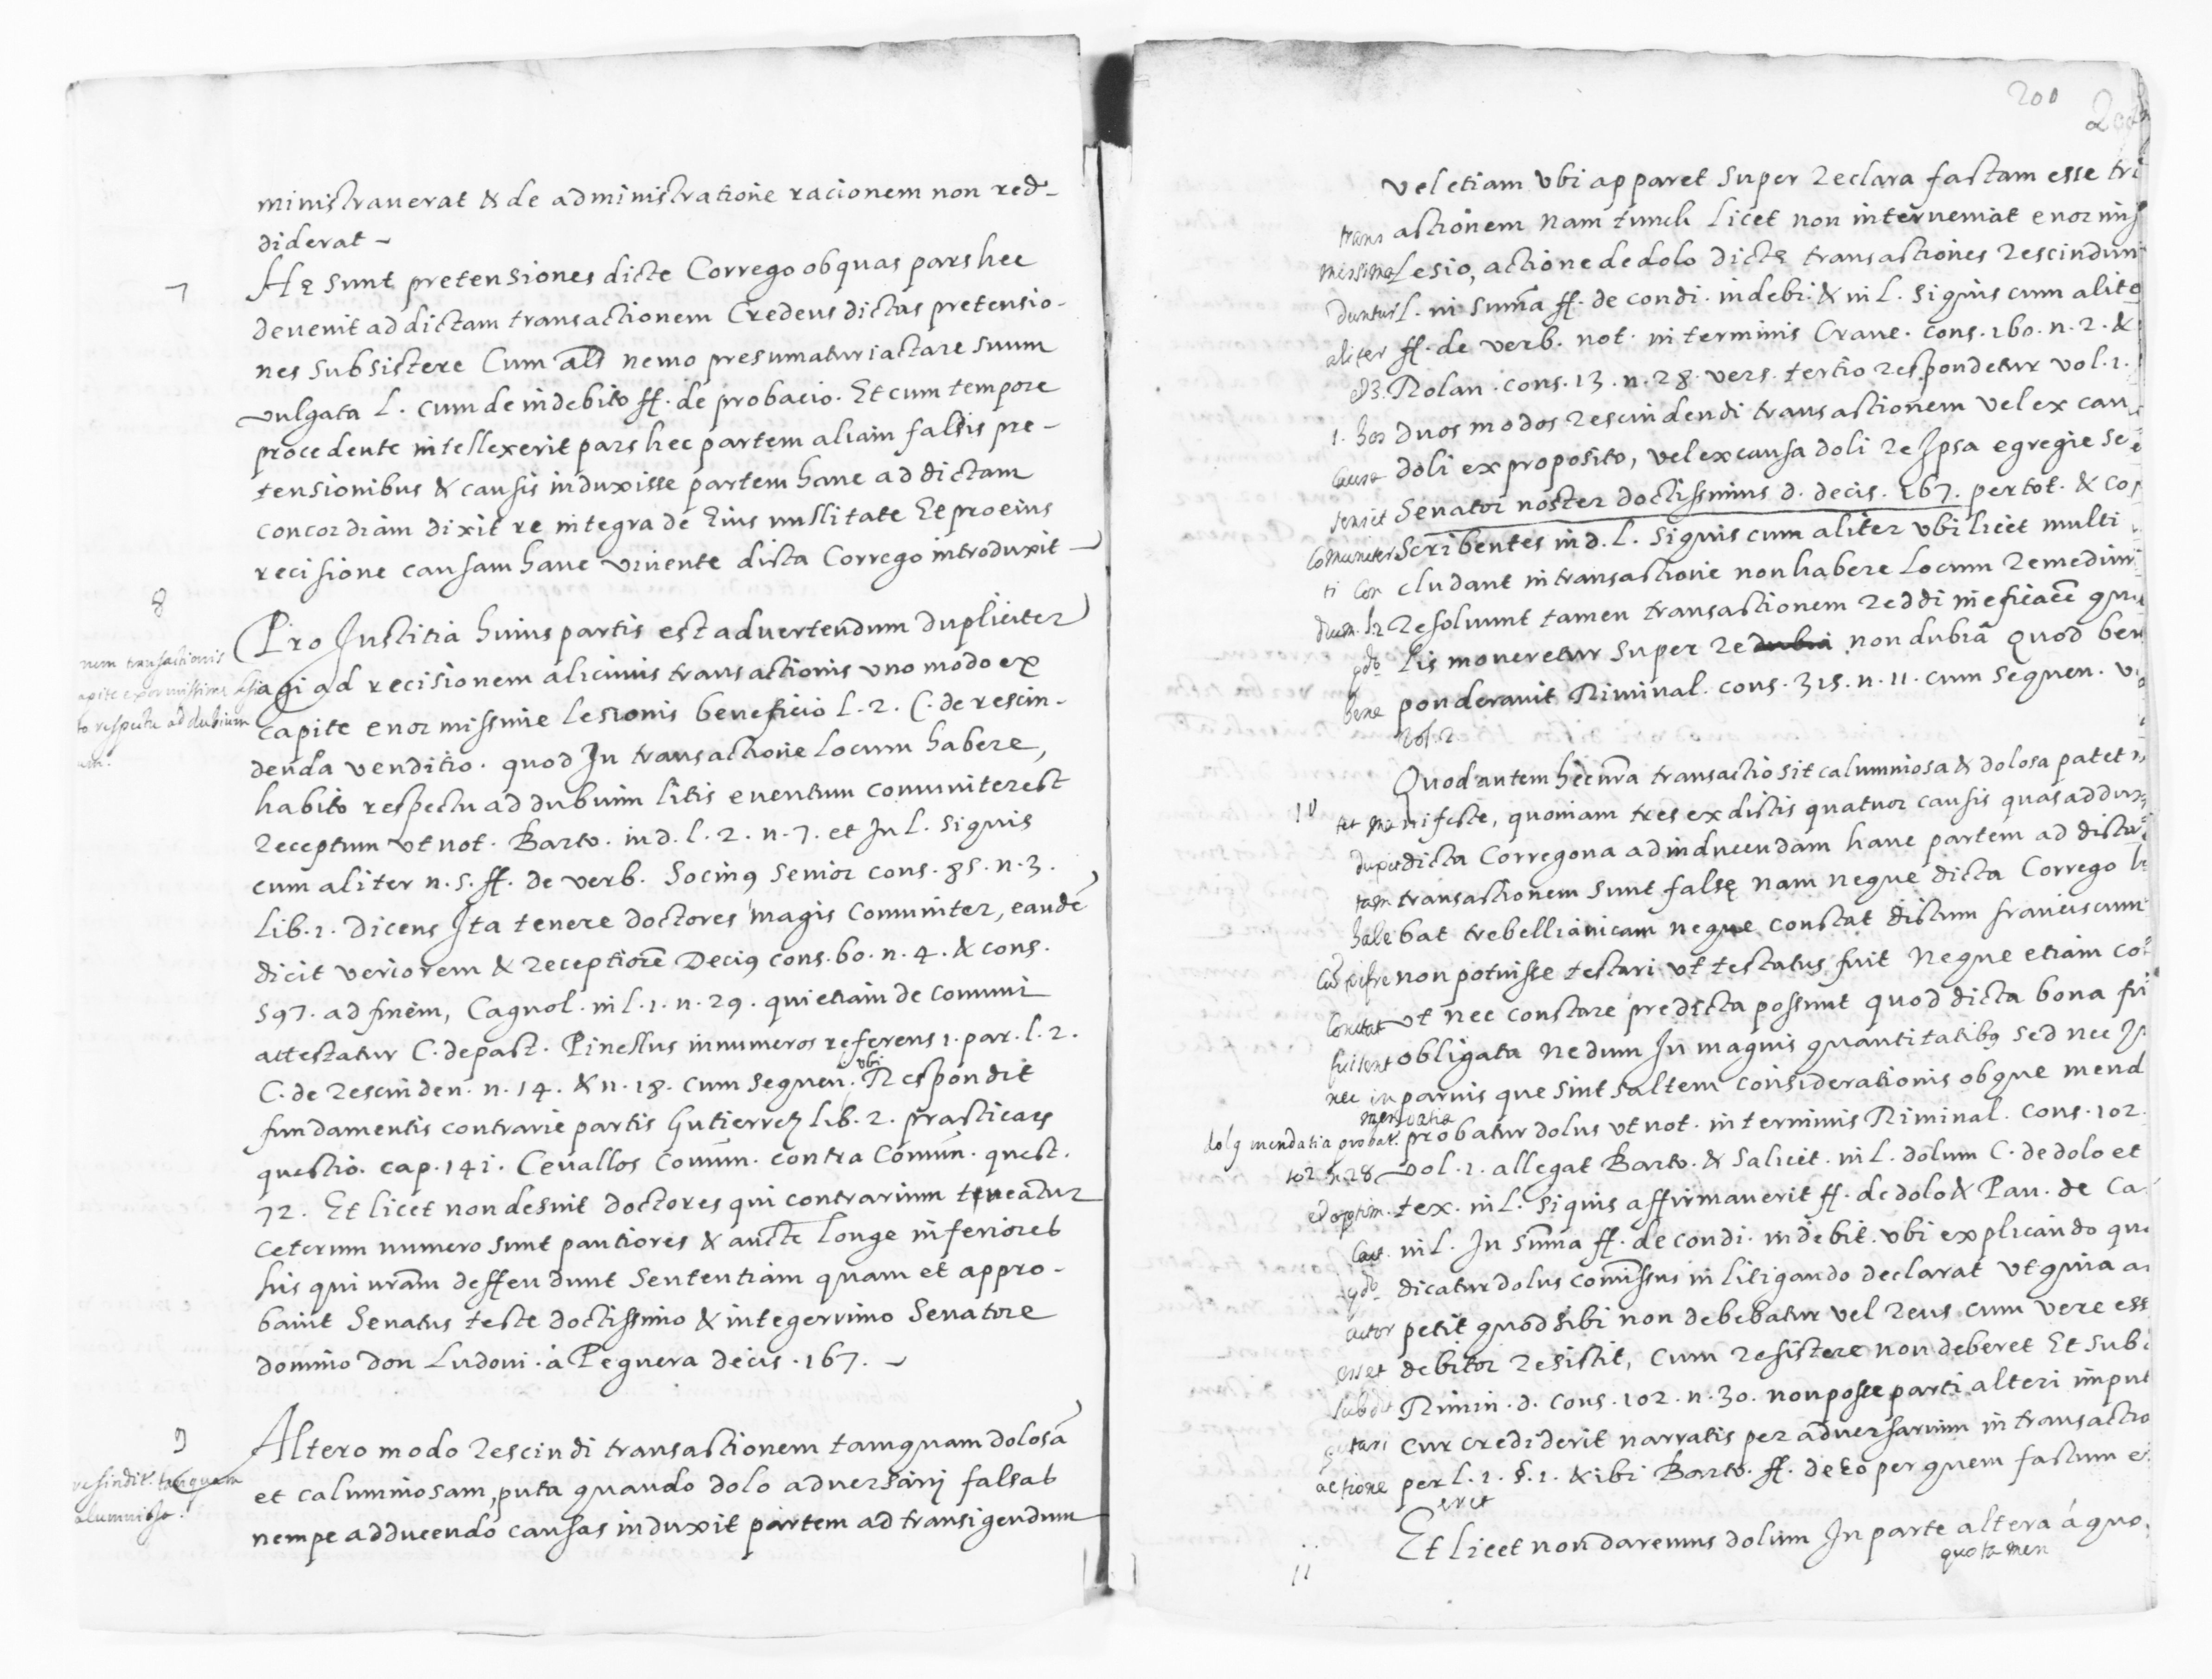 ministraverat & de administratione racionem non red-
diderat -
7
Hę sunt pretensiones dicte Corrego ob quas pars hec
devenit ad dictam transactionem Credens dictas pretensio-
nes subsistere Cum als nemo presumatur iactare suum
vulgata L. cum de indebito ff. de probacio. Et cum tempore
procedente intellexerit pars hec partem aliam falsis pre-
tensionibus & causis induxisse partem hanc ad dictam
concordiam dixit re integra de Eius nullitate Et pro eius
recisione causam hanc vivente dicta Corrego introduxit
8
Pro Justitia huius partis est advertendum dupliciter
num transactionis
agi ad recisionem alicuius transactionis uno modo ex
capite enormissime lesionis beneficio L. 2. C. de rescin-
to respectu ad dubium
denda venditio. quod In transactione locum habere,
habito respectu ad dubium litis eventum comuniter est
receptum ut not. Barto. in d. l. 2. n. 7. et In l. siquis
cum aliter n. 5. ff. de verb. Socinꝯ senior cons. 85. n. 3.
lib. 1. dicens Ita tenere doctores magis comuniter, eandē
dicit veriorem & receptiorē Deciꝯ cons. 60. n. 4. & cons.
597. ad finem, Cagnol. in l. 1. n. 29. qui etiam de comuni
attestatur C. de pact. Pinellus innumeros referens 1. par. l. 2.
C. de rescinden. n. 14. & n. 18. cum sequen. ubi Respondit
fundamentis contrarie partis Gutierrez lib. 2. practicaꝝ
questio. cap. 141. Cevallos Comūn. contra Comūn. quest.
72. Et licet non desint doctores qui contrarium teneātur
ceterum numero sunt pautiores & aucte longe inferiores
his qui nrām deffendunt sententiam quam et appro-
bavit Senatus teste doctissimo & integerrimo Senatore
domino don Ludovi. à Peguera decis. 167. -
9
Altero modo rescindi transactionem tamquam dolosā
resindit. tanquam
et calumniosam, puta quando dolo adversarij falsas
calumniosa.
nempe adducendo causas induxit partem ad transigendum
200
vel etiam ubi apparet super re clara factam esse tra
trans actionem Nam tunch licet non interveniat enormis
missima Lesio, actione de dolo dictę transactiones rescindun
duntur L. in summa ff. de condi. indebi. & in L. siquis cum alite
aliter ff. de verb. not. in terminis Crave. cons. 160. n. 2. &
& 3. Rolan. cons. 13. n. 28. vers. tertio respondetur vol. 1.
1. hos duos modos rescindendi transactionem vel ex cau
causa doli ex proposito, vel ex causa doli re Ipsa egregie se
sensit Senator noster doctissimus d. decis. 167. per tot. & co
comuniter scribentes in d. l. siquis cum aliter ubi licet multi
ti con cludant in transactione non habere locum remedium
resolvunt tamen transactionem reddi ineficacē qu
qdo. lis moveretur super re non dubiā quod ben
bene ponderavit Riminal. cons. 315. n. 11. cum sequen. v
vol. 2
10
Quod autem hec nrā transactio sit calumniosa & dolosa patet
tet ma nifeste, quoniam tres ex dictis quatuor causis quas addux
duxit dicta Corregona ad inducendam hanc partem ad dicta
tam transactionem sunt falsę nam neque dicta Corrego h
habe bat trebellianicam neque constat dictum franciscum
non potuisse testari ut testatus fuit Neque etiam co
constat ut nec constare predicta possunt quod dicta bona fu
fuissent obligata Nedum In magnis quantitatibꝯ sed nec I
nec in parvis que sint saltem considerationis ob que mend
mendatia
dolꝯ mendatia probat. probatur dolus ut not. in terminis Riminal. cons. 102.
102. n. 28 vol. 1. allegat Barto. & Salicet. in L. dolum C. de dolo et
tex. in L. siquis affirmaverit ff. de dolo & Pau. de Ca
Cast. in L. In summa ff. de condi. indebit. ubi explicando qu
qdo. dicatur dolus comissus in litigando declarat ut quia a
actor petit quod sibi non debebatur vel reus cum vere ess
esset debitor resistit, cum resistere non deberet Et sub
subdit Rimin. d. cons. 102. n. 30. non posse parti alteri imput
putari cur crediderit narratis per adversarium in transactio
actione per l. 1. §. 1. & ibi Barto. ff. de eo per quem factum e
erit
11
Et licet non daremus dolum In parte altera á quo
quo tamen